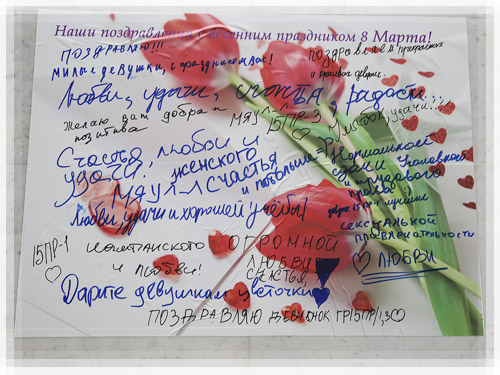 Наши поздравления с весенним праздником 8 Марта!
ПОЗДРАВЛЯЮ!!!
милые девушки, с праздником Вас!
поздравляем прекрасных
и красивых девушек.
Любви, удачи, счастья, радости...
Желаю вам добра и
позитива
МЯУЛ-Л
15ПР-3
Улыбок, удачи...
Счастья, любви и
удачи. женского
МЯУЛ-Л счастья
и побольше
Нормальной
сдачи Уголовного
и трудового
права
Любви, удачи и хорошей учёбы!
15ПР-1 лучшие
сексуальной
привлекательности
15ПР-1
и любви!
ОГРОМНОЙ
ЛЮБВИ
СЧАСТЬЯ
ЛЮБВИ
Дарите девушкам цветочки
ПОЗДРАВЛЯЮ ДЕВЧОНОК ГР15ПР/1,3